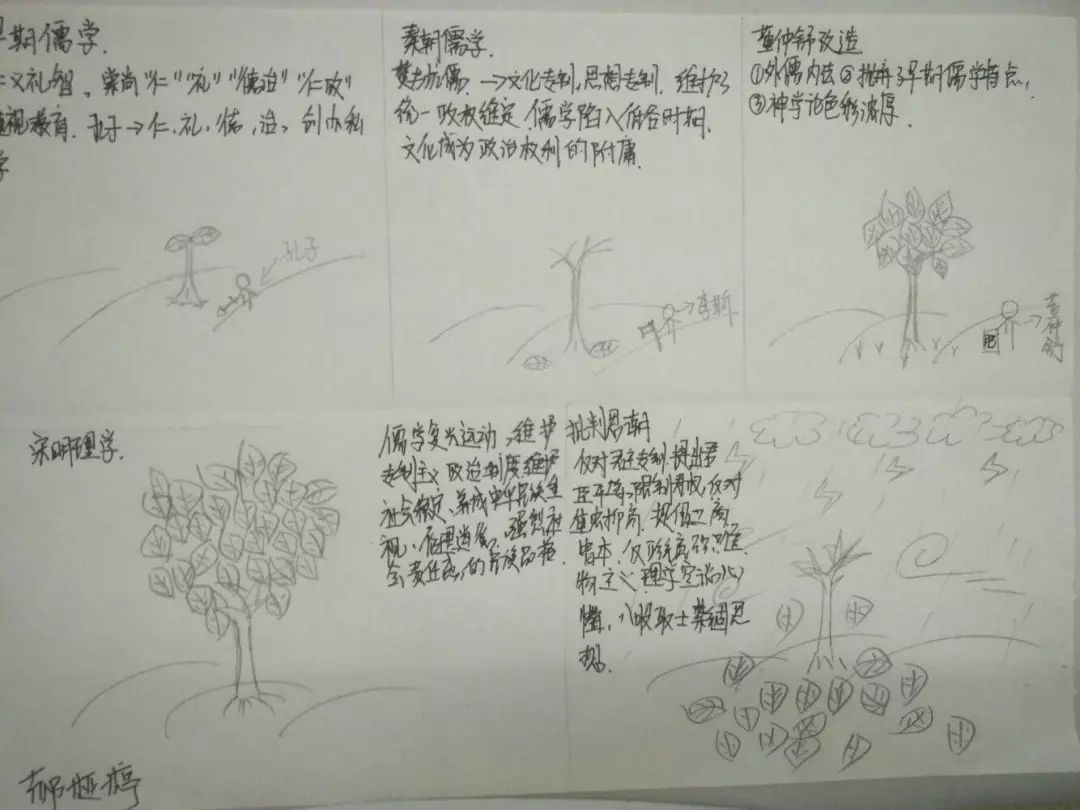 早期儒学.
仁义礼智。崇尚“仁”“礼”“德治”“仁政”
重视教育. 孔子→仁、礼、德、治。创办私
学
孔子
秦朝儒学.
焚书坑儒 →文化专制,思想专制. 维护了
统一政权稳定. 儒学陷入低谷时期.
文化成为政治权利的附庸.
→李斯
董仲舒改造
①外儒内法 ②抛弃了早期儒学特点.
③神学论色彩浓厚.
肥
→董仲舒
宋明理学.
儒学复兴运动,维护
专制主义政治制度.维护
社会稳定、养成中华民族重
视、伦理道德、强烈社
会责任感的民族品格.
批判思潮
反对君主专制.提出君
臣平等、限制君权,反对
重农抑商. 提倡工商
皆本.
物主义 理学空谈心